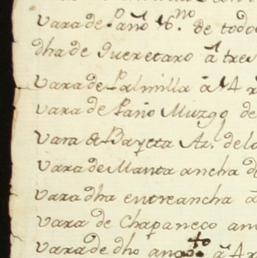 vara de Paño 16.no de todo
dha de Queretaro á tres
vara de Palmilla á 4 r
vara de Paño Muzgo de
vara de Bayeta Az. de la
vara de Manta ancha d
vara dha entreancha á
vara de Chapaneco an
vara de dho ango.to á 4 r